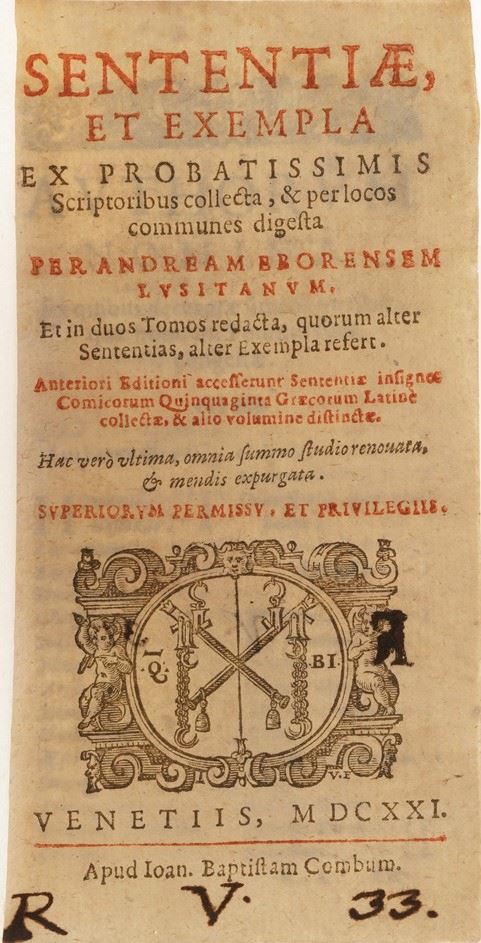 SENTENTIÆ,
ET EXEMPLA
EX PROBATISSIMIS
Scriptoribus collecta, & per locos
communes digeſta
PER ANDREAM EBORENSEM
LVSITANVM.
Et in duos Tomos redacta, quorum alter
Sententias, alter Exempla refert.
Anteriori Editioni acceſſerunt Sententiæ inſignes
Comicorum Quinquaginta Græcorum Latinè
collectæ, & alio volumine diſtinctæ.
Hac verò vltima, omnia ſummo ſtudio renouata,
& mendis expurgata.
SVPERIORVM PERMISSV, ET PRIVILEGIIS.
I
.Q. BI.
A
V.F
VENETIIS, MDCXXI.
Apud Ioan. Baptiſtam Combum.
R V. 33.